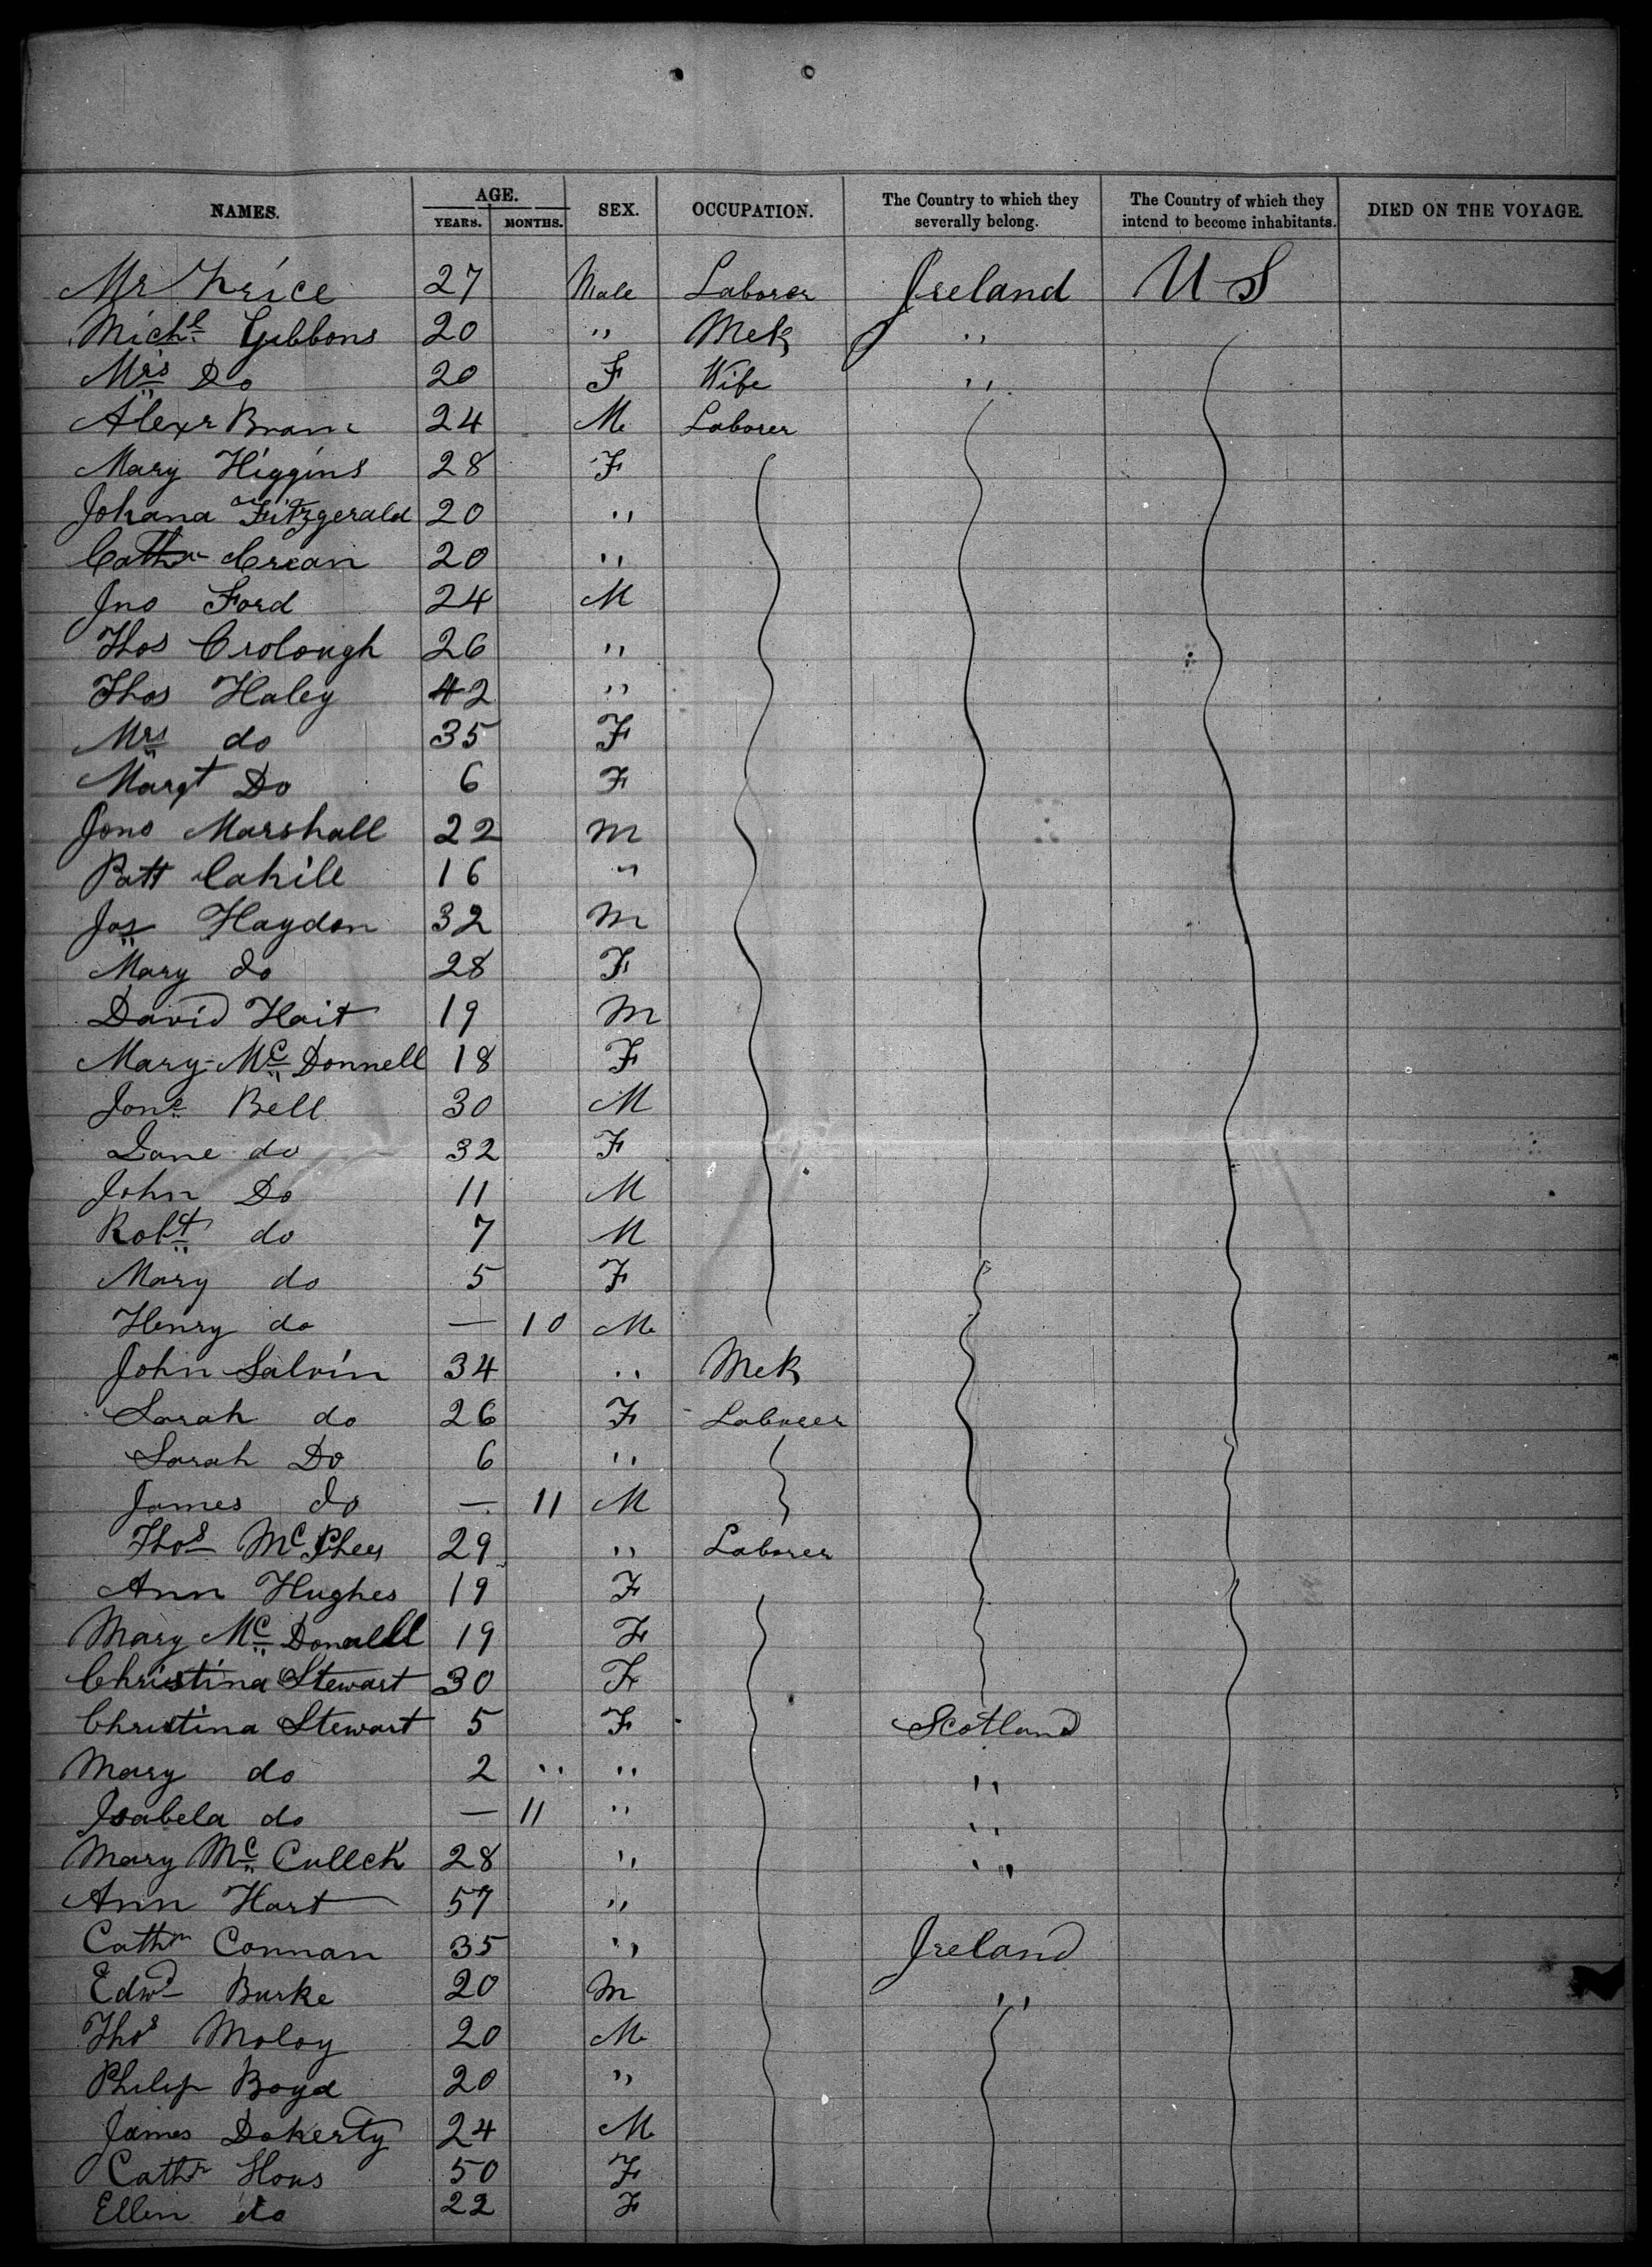 NAMES. AGE. YEARS. MONTHS. SEX. OCCUPATION. The Country to which they severally belong. The Country of which they intend to become inhabitants. DIED ON THE VOYAGE.
Mr 27 Male Laborer Ireland U S
Michl Gibbons 20 " Mek "
Mrs Do 20 F Wife "
Alexr 24 M Laborer
Mary Higgins 28 F
Johana Fitzgerald 20 "
Cathr Crean 20 "
Jno Ford 24 M
Thos Crolough 26 "
Thos Haley 42 "
Mrs do 35 F
Margt Do 6 F
Jono Marshall 22 M
Patt Cahill 16 "
Jas Haydon 32 M
Mary do 28 F
David Hait 19 M
Mary Mc Donnell 18 F
Bell 30 M
Jane do 32 F
John Do 11 M
Robt do 7 M
Mary do 5 F
Henry do — 10 M
John Salvin 34 " Mek
Sarah do 26 F Laborer
Sarah Do 6 "
James do — 11 M
Thos Mc Phee 29 " Laborer
Ann Hughes 19 F
Mary Mc Donalll 19 F
Christina Stewart 30 F
Christina Stewart 5 F Scotland
Mary do 2 " " "
Isabela do — 11 " "
Mary Mc Cullch 28 " "
Ann Hart 57 "
Cathn Connan 35 " Ireland
Edwd Burke 20 M "
Thos Moloy 20 M
Philip Boyd 20 "
James Dokerty 24 M
Cathr 50 F
Ellen do 22 F